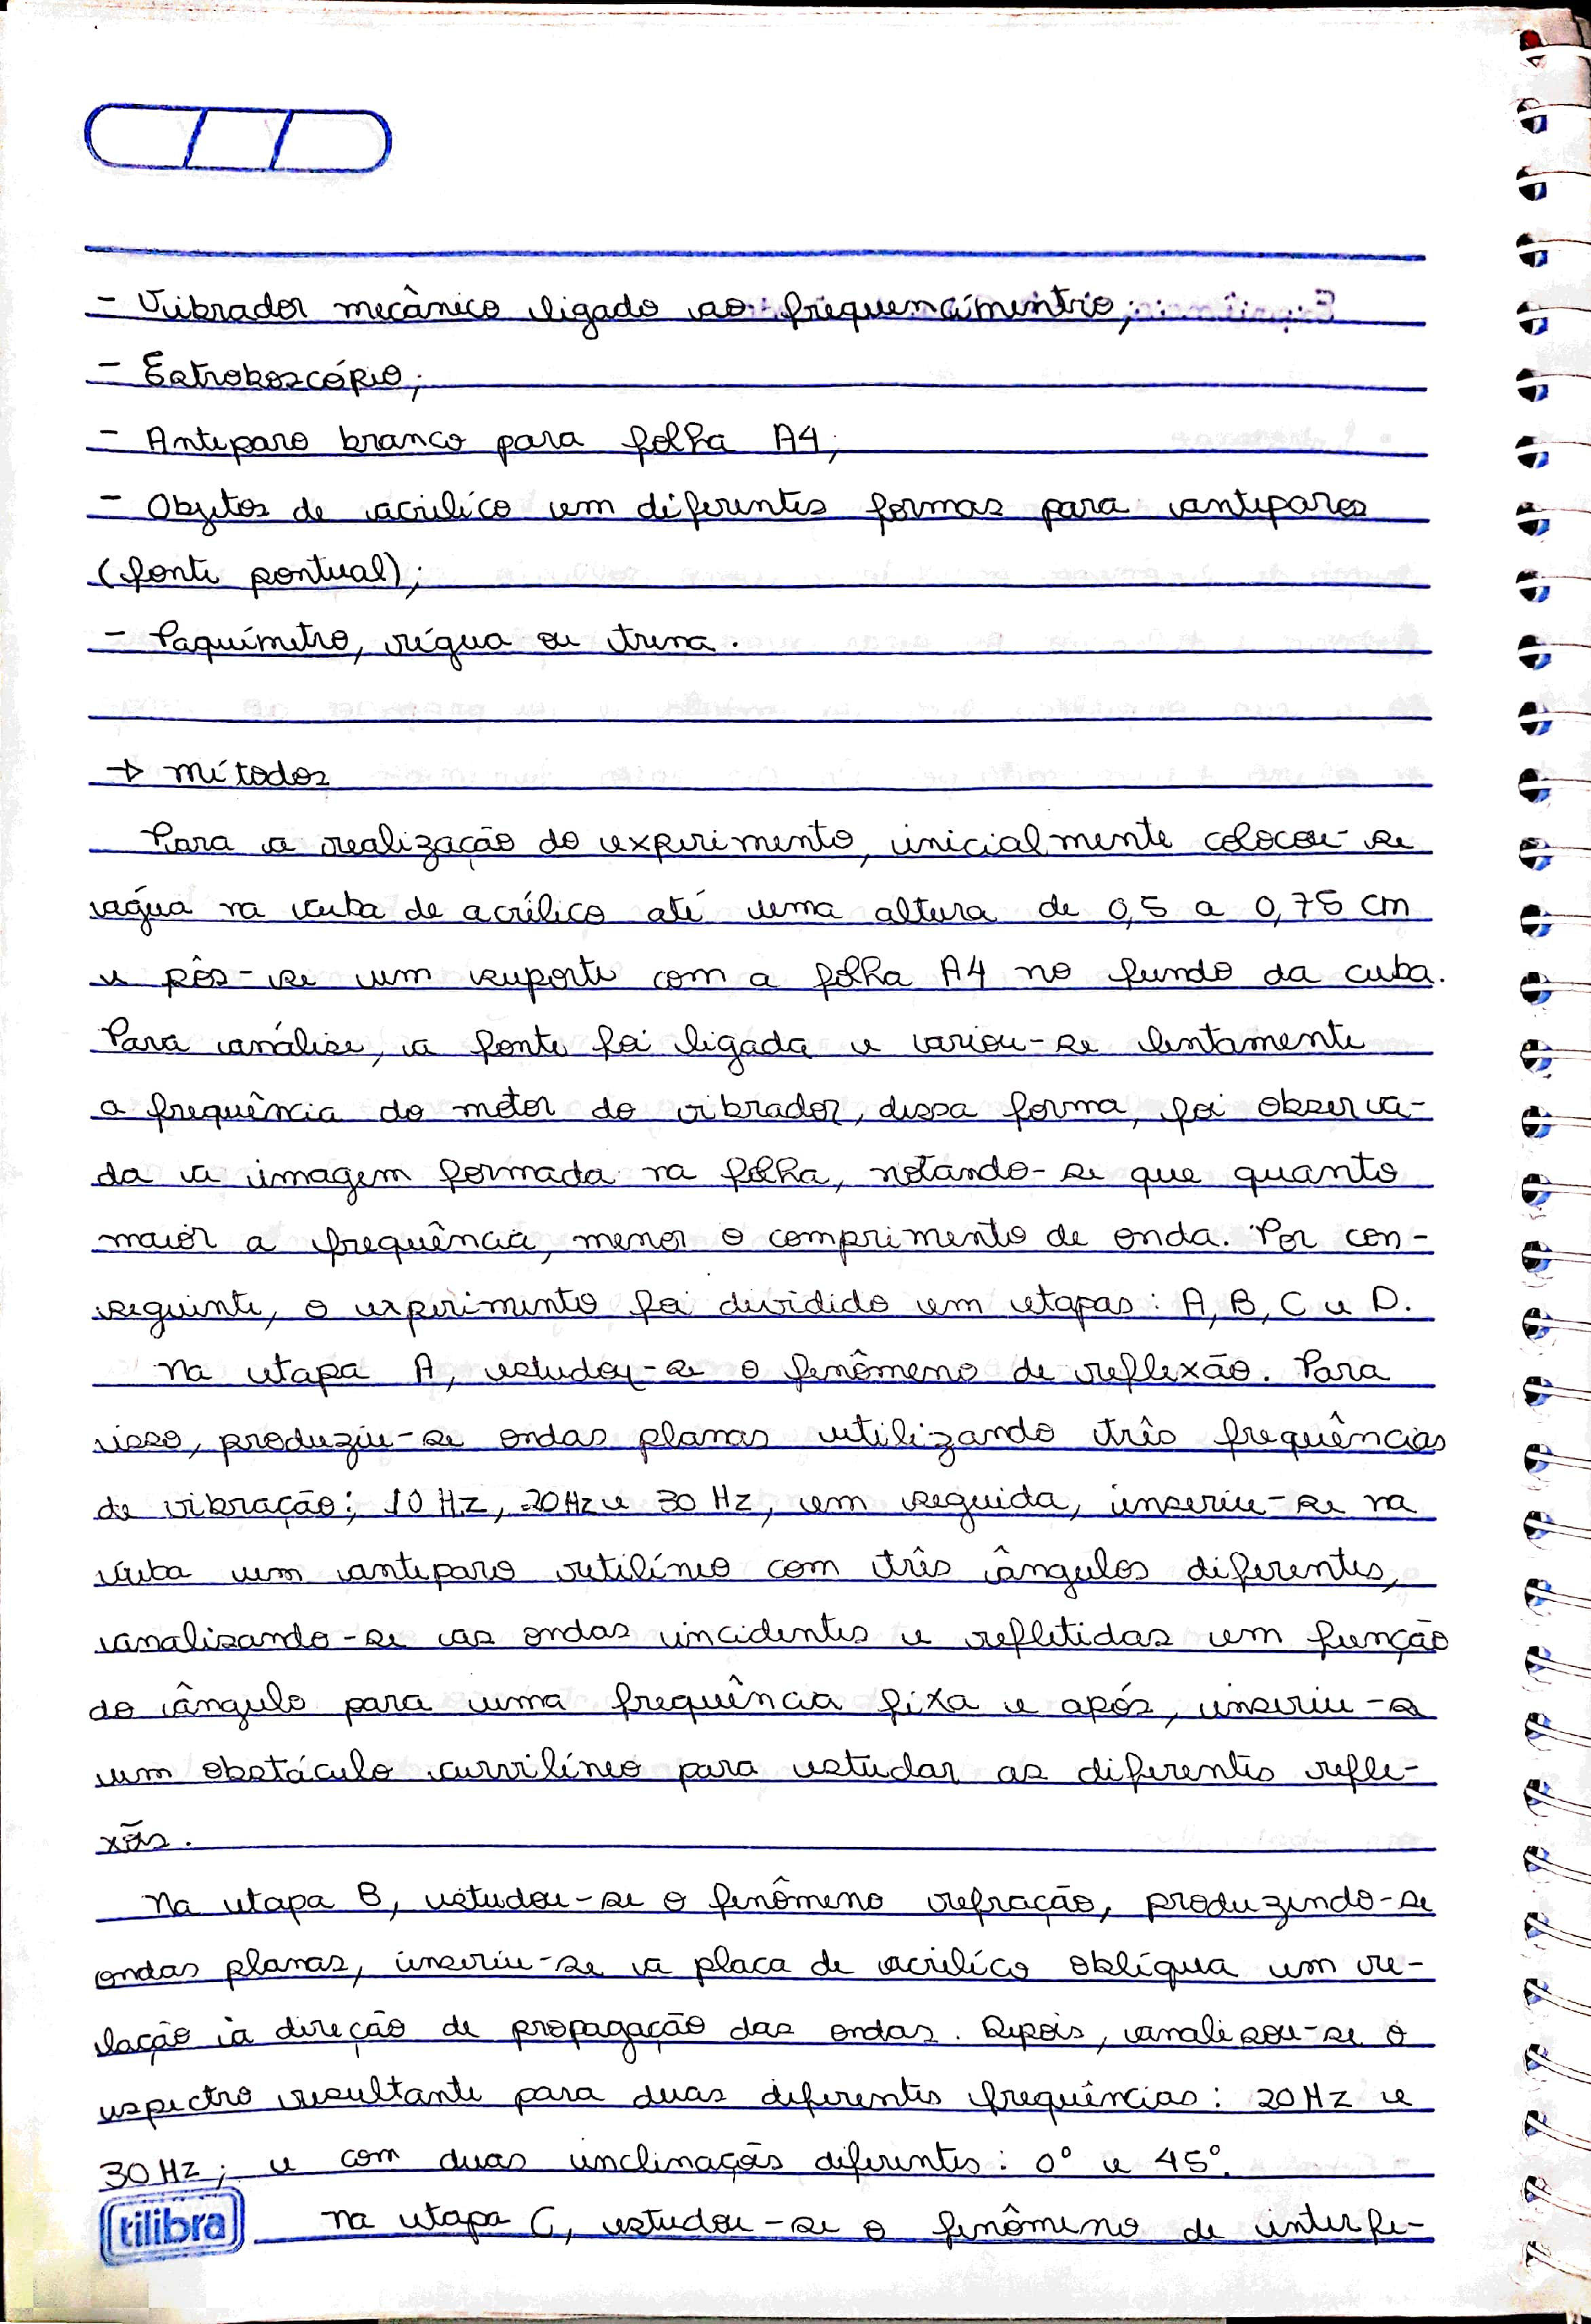 - Vibrador mecânico ligado ao frequencímentrio;
- Estroboscópio;
- Anteparo branco para folha A4;
- Objetos de acrilíco em diferentes formas para anteparos
(fonte pontual);
- Paquímetro, régua ou trena.
→ métodos
Para a realização do experimento, inicialmente colocou-se
água na cuba de acrílico até uma altura de 0,5 a 0,75 cm
e pôs-se um suporte com a folha A4 no fundo da cuba.
Para análise, a fonte foi ligada e variou-se lentamente
a frequência do motor do vibrador, dessa forma, foi observa-
da a imagem formada na folha, notando-se que quanto
maior a frequência, menor o comprimento de onda. Por con-
seguinte, o experimento foi dividido em etapas: A, B, C e D.
Na etapa A, estudou-se o fenômeno de reflexão. Para
isso, produziu-se ondas planas utilizando três frequências
de vibração; 10 Hz, 20Hz e 30 Hz, em seguida, inseriu-se na
cuba um anteparo retilíneo com três ângulos diferentes,
analisando-se as ondas incidentes e refletidas em função
do ângulo para uma frequência fixa e após, inseriu-se
um obstáculo curvilíneo para estudar as diferentes refle-
xões.
Na etapa B, estudou-se o fenômeno refração, produzindo-se
ondas planas, inseriu-se a placa de acrilíco oblíqua em re-
lação à direção de propagação das ondas. Depois, analisou-se o
espectro resultante para duas diferentes frequências: 20Hz e
30Hz; e com duas inclinações diferentes: 0° e 45°.
tilibra
Na etapa C, estudou-se o fenômeno de interfe-